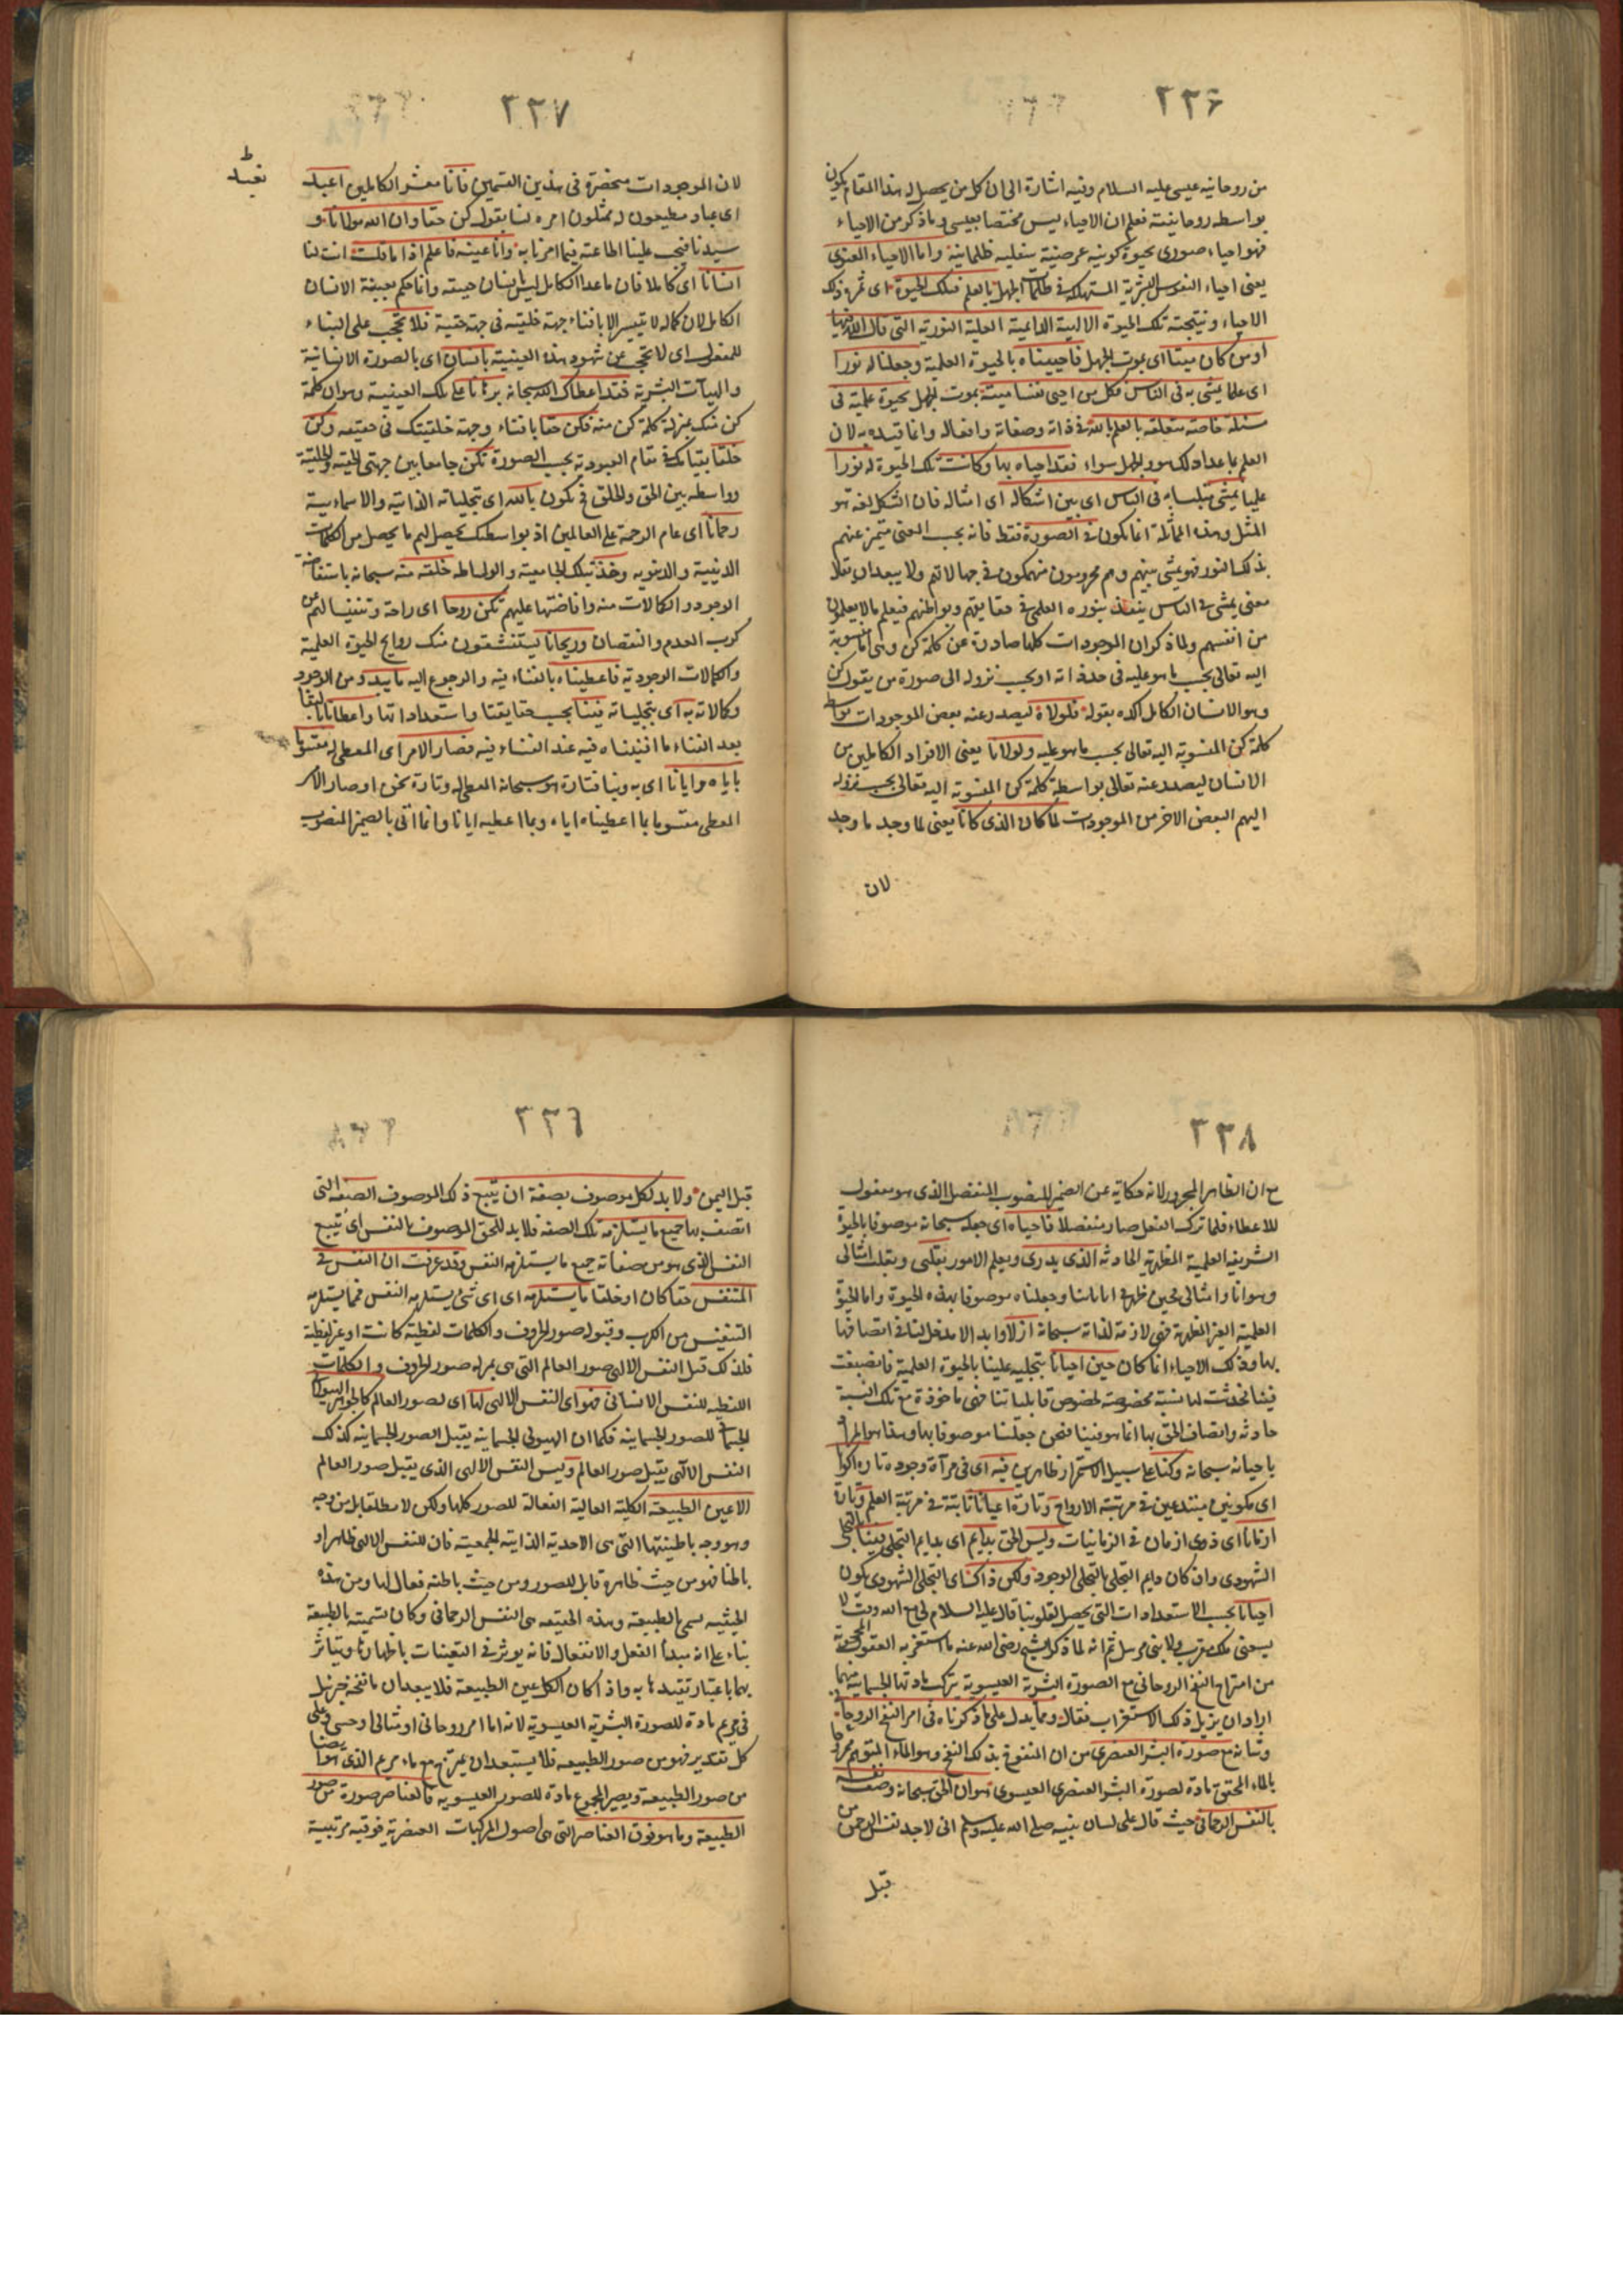 ٢٣٦
من روحانيه عيسى عليه السلام وفيه اشارة الى ان كل من يحصل له هذا المقام يكون
بواسطه روحانيته فعلم ان الاحياء ليس مختصا بعيسى وما ذكر من الاحياء
فهو احياء صورى بحيوة كونيه عرضية سفليه ظلمانية واما الاحياء المعنوى
يعنى احياء النفوس البشرية المستهلكة فى ظلمات الجهل بالعلم فتلك الحيوة اى ثمرة ذلك
الاحياء ونتيجته تلك الحيوة الالهية الدائمية العلية النورية التى قال الله فيها
اومن كان ميتا اى بموت الجهل فاحييناه بالحيوة العلمية وجعلنا له نورا
اى علما يمشى به فى الناس فكل من احيى نفسا ميتة بموت الجهل بحيوة علمية فى
مسئلة خاصة متعلقة بالعلم بالله فى ذاته وصفاته وافعاله وانما قيده به لان
العلم بما عدا ذلك هو والجهل سواء فقد احياه بها وكانت تلك الحيوة له نورا
علميا يمشى متلبسا به فى الناس اى بين اشكاله اى امثاله فان الشكل لغة هو
المثل وهذه المماثلة انما يكون فى الصورة فقط فانه بحسب المعنى متميز عنهم
بذلك النور فهو يمشى بينهم وهم محرومون منهمكون فى جهالاتهم ولا يبعد ان يقال
معنى يمشى فى الناس ينفذ بنوره العلمى فى حقايقهم وبواطنهم فيعلم ما لا يعلمون
من انفسهم ولما ذكر ان الموجودات كلها صادرة عن كلمة كن وهى اما منسوبة
اليه تعالى بحسب ما هو عليه فى حد ذاته او بحسب نزوله الى صورة من يقول كن
وهو الانسان الكامل اكده بقوله فلولاه ليصدر عنه بعض الموجودات بواسطة
كلمة كن المنسوبة اليه تعالى بحسب ما هو عليه ولولانا يعنى الافراد الكاملين من
الانسان ليصدر عنه تعالى بواسطة كلمة كن المنسوبة اليه تعالى بحسب نزوله
اليهم البعض الاخر من الموجودات لما كان الذى كانا يعنى لما وجد ما وجد
لان
٢٣٧
لان الموجودات منحصرة فى هذين القسمين فانا معشر الكاملين اعبد
اى عباد مطيعون له ممتثلون امره لنا بقوله كن حقا وان الله مولانا و
سيدنا فيجب علينا اطاعته فيما امرنا به وانا عينه فاعلم اذا ما قلت انت لنا
انسانا اى كاملا فان ما عدا الكامل ليس بانسان حقيقة وانما حكم بعينية الانسان
الكامل لان كماله لا تيسر الا بافناء جهة خلقيته فى جهة حقية فلا تحجب على البناء
للمفعول اى لا تحجب عن شهود هذه العينية بانسان اى بالصورة الانسانية
والهيآت البشرية فقد اعطاك الله سبحانه برهانا على تلك العينية وهو ان كلمة
كن منك بمنزلة كلمة كن منه فكن حقا بافناء وجهة خلقيتك فى حقيته وكن
خلقا بقيامك فى مقام العبودية بحسب الصورة تكن جامعا بين جهتى الحقية والخلقية
وواسطة بين الحق والخلق فى تكون بالله اى بتجلياته الذاتية والاسمائية
رحمانا اى عام الرحمة على العالمين اذ بواسطتك يحصل لهم ما يحصل من الكمالات
الدينية والدنيويه وغذ بتلك الجامعية والوساطه خلقه منه سبحانه باستفاضة
الوجود والكمالات منه وافاضتها عليهم تكن روحا اى راحة وتنفيسا لهم عن
كرب العدم والنقصان وريحانا يستنشقون منك روايح الحيوة العلمية
والكمالات الوجودية فاعطيناه بالفناء فيه والرجوع اليه ما يبدو من الوجود
وكالاته به اى بتجلياته فينا بحسب حقايقنا واستعداداتنا واعطانا البقا
بعد الفناء ما افنيناه فيه عند الفناء فيه فصار الامر اى المعطى له مقسوما
باياه وايانا اى به وبنا فتارة هو سبحانه المعطى له وتارة نحن او صار الامر
المعطى مقسوما بما اعطيناه اياه وبما اعطيه ايانا وانما اتى بالضمير المنصوب
٢٣٨
مع ان الظاهر المجرور لانه حكاية عن الضمير المنصوب المنفصل الذى هو مفعول
للاعطاء فلما ترك الفعل صار منفصلا فاحياه اى جعله سبحانه موصوفا بالحيوة
الشريفة العلمية المظهرية الحادثة الذى يدرى ويعلم الامور بقلبى وبقلب امثالى
وهو انا وامثالى حين ظهر فى احيانا وجعلناه موصوفا بهذه الحيوة واما الحيوة
العلمية الغير المظهرية فهى لازمة لذاته سبحانه ازلا وابدا لا مدخل لنا فى اتصافه
بها وذلك الاحياء انما كان حين احيانا بتجليه علينا بالحيوة العلمية فانصبغت
فينا فحدثت لها نسبة مخصوصة لخصوص قابلياتنا فهى ماخوذة مع تلك النسبة
حادثه واتصاف الحق بها انما هو فينا فنحن جعلنا موصوفا بها وهذا هو المراد
باحيائه سبحانه وكنا على سبيل الاستمرار ظاهرين فيه اى فى مرآة وجوده تاره اكوا
اى مكونين مبتدعين فى مرتبته الارواح وتارة اعيانا ثابتة فى مرتبة العلم وتارة
ازمانا اى ذوى ازمان فى الزمانيات وليس الحق بدايم اى بدايم التجلى فينا بالتجلى
الشهودى وان كان دايم التجلى بالتجلى الوجودى ولكن ذاك اى التجلى الشهودى يكون
احيانا بحسب الاستعدادات التى يحصل لقلوبنا قال عليه السلام لى مع الله وقت لا
يسعنى ملك مقرب ولا نبى مرسل ثم انه لما ذكر الشيخ رضى الله عنه ما استغربه العقول المحجوبة
من امتزاج النفخ الروحانى مع الصورة البشرية العيسوية بترك مادتها الجسمانية منهما
اراد ان يزيل ذلك الاستغراب فقال ومما يدل على ما ذكرناه فى امر النفخ الروحانى
وشانه مع صورة البشر العنصرى من ان المنفوخ بذلك النفخ وهو الماء المتوهم
بالماء المحقق مادة لصورة البشر العنصرى العيسوى هو ان الحق سبحانه وصف نفسه
بالنفس الرحمانى حيث قال على لسان نبيه صلى الله عليه وسلم انى لاجد نفس الرحمن من
قبل
٢٣٩
قبل اليمن ولا بد لكل موصوف بصفة ان يتبع ذلك الموصوف الصفة التى
اتصف بها جميع ما يستلزمه تلك الصفه فلا بد للحق الموصوف بالنفس اى يتبع
النفس الذى هو من صفاته جميع ما يستلزمه النفس وقد عرفت ان النفس فى
المتنفس حقا كان او خلقا ما يستلزمه اى اى شئ يستلزمه النفس فمما يستلزمه
التنفيس من الكرب وقبوله صور الحروف والكلمات لفظية كانت او غير لفظية
فلذلك قبل النفس الالهى صور العالم التى هى بمنزلة صور الحروف والكلمات
اللفظيه للنفس الانسانى فهو اى النفس الالهى لها اى لصور العالم كالجوهر الهيولانى
الجسمانى للصور الجسمانية فكما ان الهيولى الجسمانية يقبل الصور الجسمانية كذلك
النفس الالهى يقبل صور العالم وليس النفس الالهى الذى يقبل صور العالم
الا عين الطبيعة الكلية العالية الفعالة للصور كلها ولكن لا مطلقا بل من وجه
وهو وجه باطنيتها التى هى الاحدية الذاتية الجمعية فان للنفس الالهى ظاهرا و
باطنا فهو من حيث ظاهره قابل للصور ومن حيث باطنه فعال لها ومن هذه
الحيثيه يسمى بالطبيعة وهذه الحقيقه هى النفس الرحمانى وكان تسميته بالطبيعة
بناء على انه مبدأ الفعل والانفعال فانه يوثر فى التعينات باظهارها ويتاثر
بها باعتبار تقيده به واذا كان الكل عين الطبيعة فلا يبعد ان ما نفخه جبرئيل
فى مريم مادة للصورة البشرية العيسوية لانه اما امر روحانى او مثالى او حسى وعلى
كل تقدير فهو من صور الطبيعه فلا يستبعد ان يمتزج مع ماء مريم الذى هو ايضا
من صور الطبيعة ويصير المجموع مادة للصور العيسويه فالعناصر صورة من صور
الطبيعة وما هو فوق العناصر التى هى اصول المركبات العنصرية فوقيه مرتبية